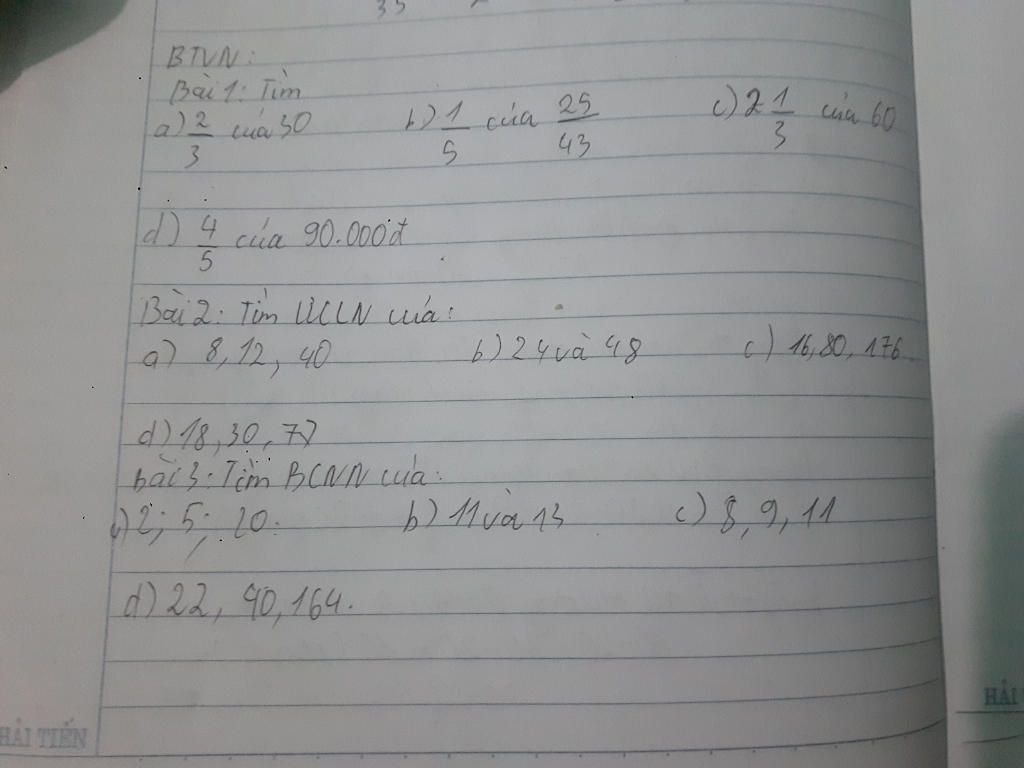 35
BTVN:
Bài 1: Tìm
a) 2/3 của 30 b) 1/5 của 25/43 c) 2 1/3 của 60
d) 4/5 của 90.000đ
Bài 2: Tìm ƯCLN của:
a) 8, 12, 40 b) 24 và 48 c) 16, 80, 176
d) 18, 30, 77
Bài 3: Tìm BCNN của:
2; 5; 20. b) 11 và 13 c) 8, 9, 11
d) 22, 40, 164.
HẢI TIẾN
HẢI